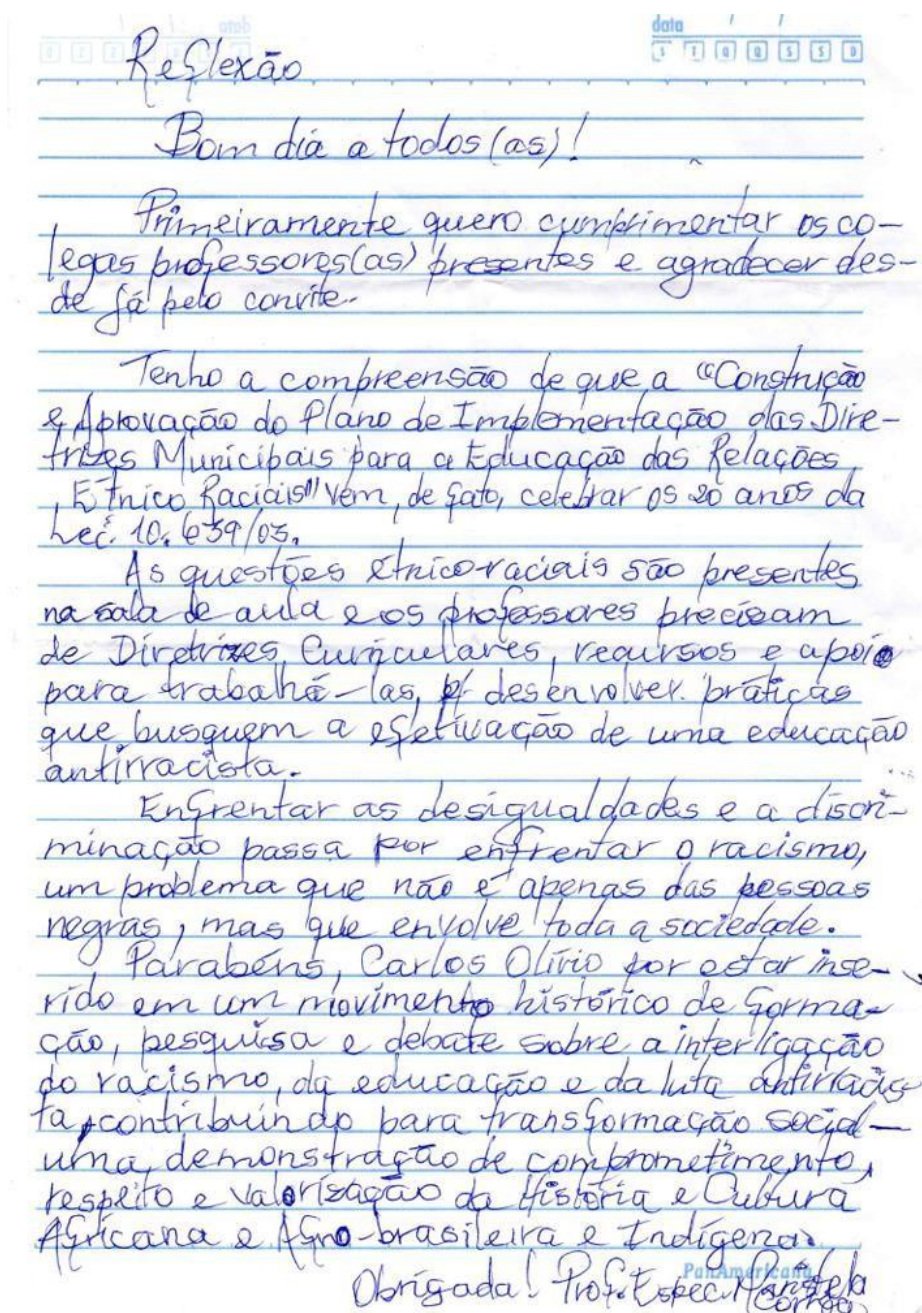 data / /
D S T Q Q S S
Reflexão
Bom dia a todos (as)!
Primeiramente quero cumprimentar os co-
legas professores(as) presentes e agradecer des-
de já pelo convite.
Tenho a compreensão de que a "Construção
e Aprovação do Plano de Implementação das Dire-
trizes Municipais para a Educação das Relações
Étnico Raciais" vem, de fato, celebrar os 20 anos da
Lei. 10.639/03.
As questões étnico-raciais são presentes
na sala de aula e os professores precisam
de Diretrizes Curriculares, recursos e apoio
para trabalhá-las, p/ desenvolver práticas
que busquem a efetivação de uma educação
antirracista.
Enfrentar as desigualdades e a discri-
minação passa por enfrentar o racismo,
um problema que não é apenas das pessoas
negras, mas que envolve toda a sociedade.
Parabéns, Carlos Olívio por estar inse-
rido em um movimento histórico de forma-
ção, pesquisa e debate sobre a interligação
do racismo, da educação e da luta antirracis-
ta, contribuindo para transformação social-
uma demonstração de comprometimento,
respeito e valorização da História e Cultura
Africana e Afro-brasileira e Indígena.
PanAmericana
Obrigada! Prof. Espec.